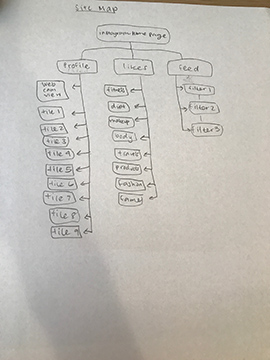 Site Map
instagram home page
Profile
likes
feed
web cam view
tile 1
tile 2
tile 3
tile 4
tile 5
tile 6
tile 7
tile 8
tile 9
fitness
diet
makeup
body
products
fashion
fame
filter 1
filter 2
filter 3